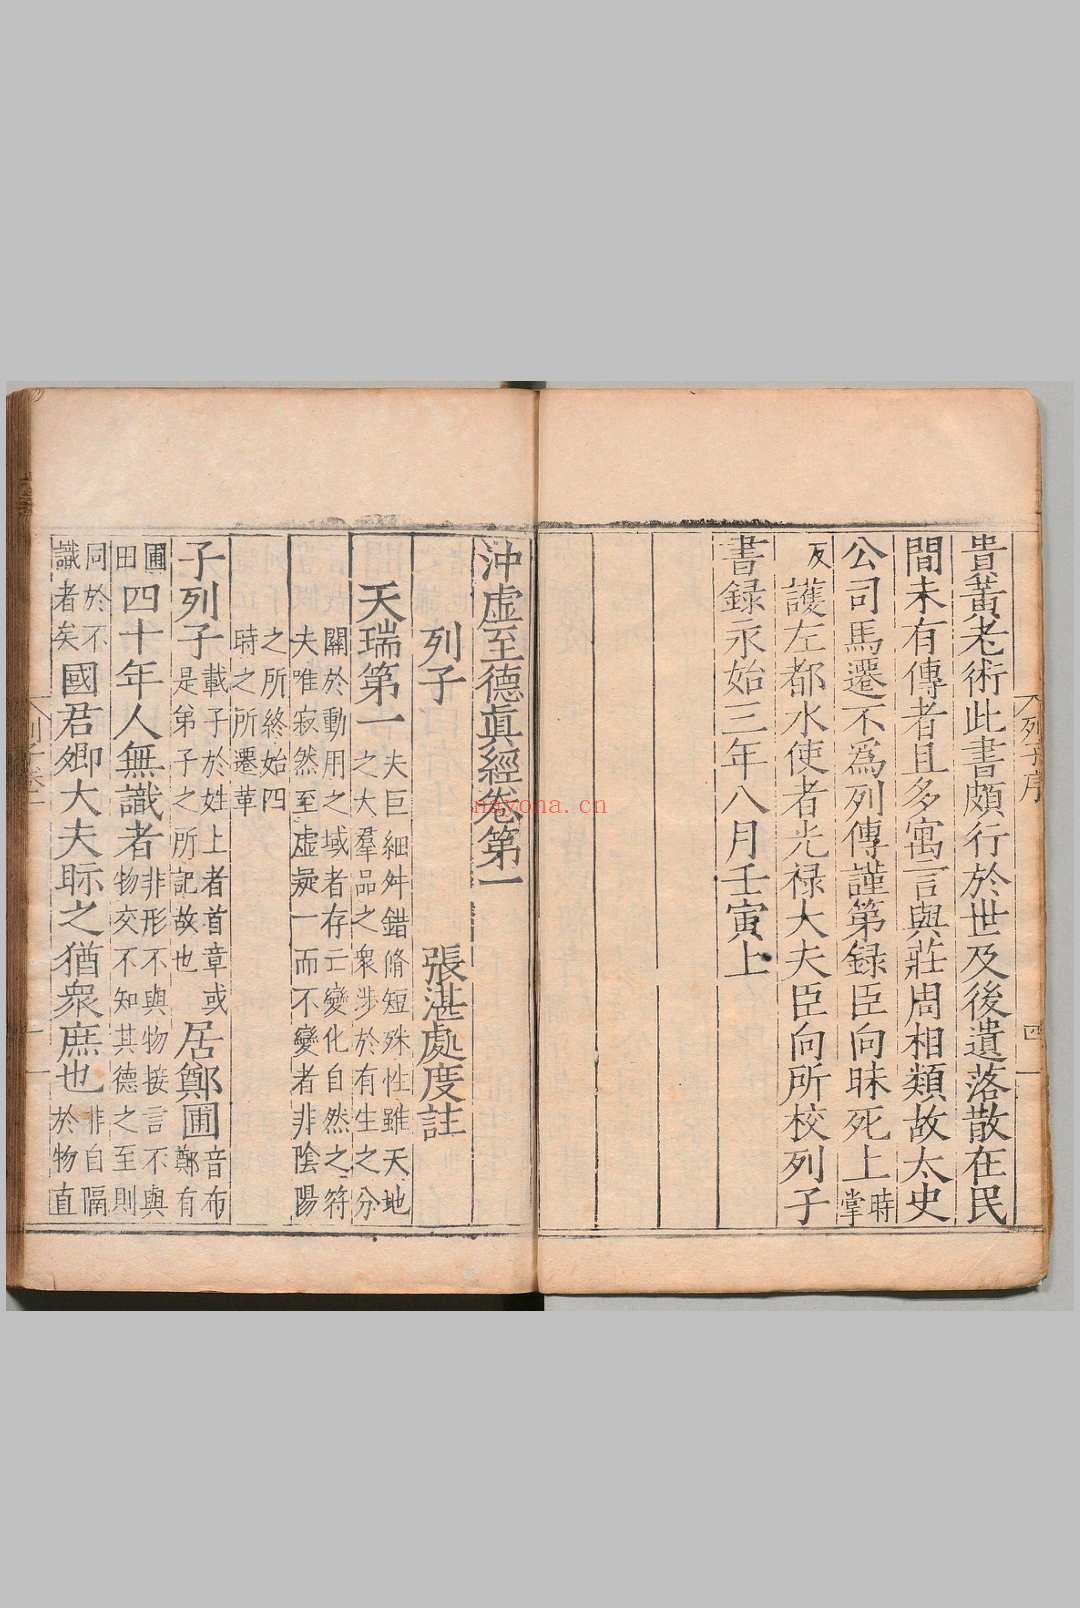 貴黃老術此書頗行於世及後遺落散在民
間未有傳者且多寓言與莊周相類故太史
公司馬遷不爲列傳謹第録臣向昧死上時掌
反護左都水使者光禄大夫臣向所校列子
書録永始三年八月壬寅上
列子序
四
沖虚至德眞經卷第一
列子
張湛處度註
天瑞第一夫巨細舛錯脩短殊性雖天地
之大羣品之衆涉於有生之分
關於動用之域者存亡變化自然之符
夫唯寂然至虚凝一而不變者非陰陽
之所終始四
時之所遷革
子列子載子於姓上者首章或
是弟子之所記故也居鄭圃音布
鄭有
圃
田四十年人無識者非形不與物接言不與
物交不知其德之至則
同於不
識者矣國君卿大夫眎之猶衆庶也非自隔
於物直
列子卷一
一
nayona.cn